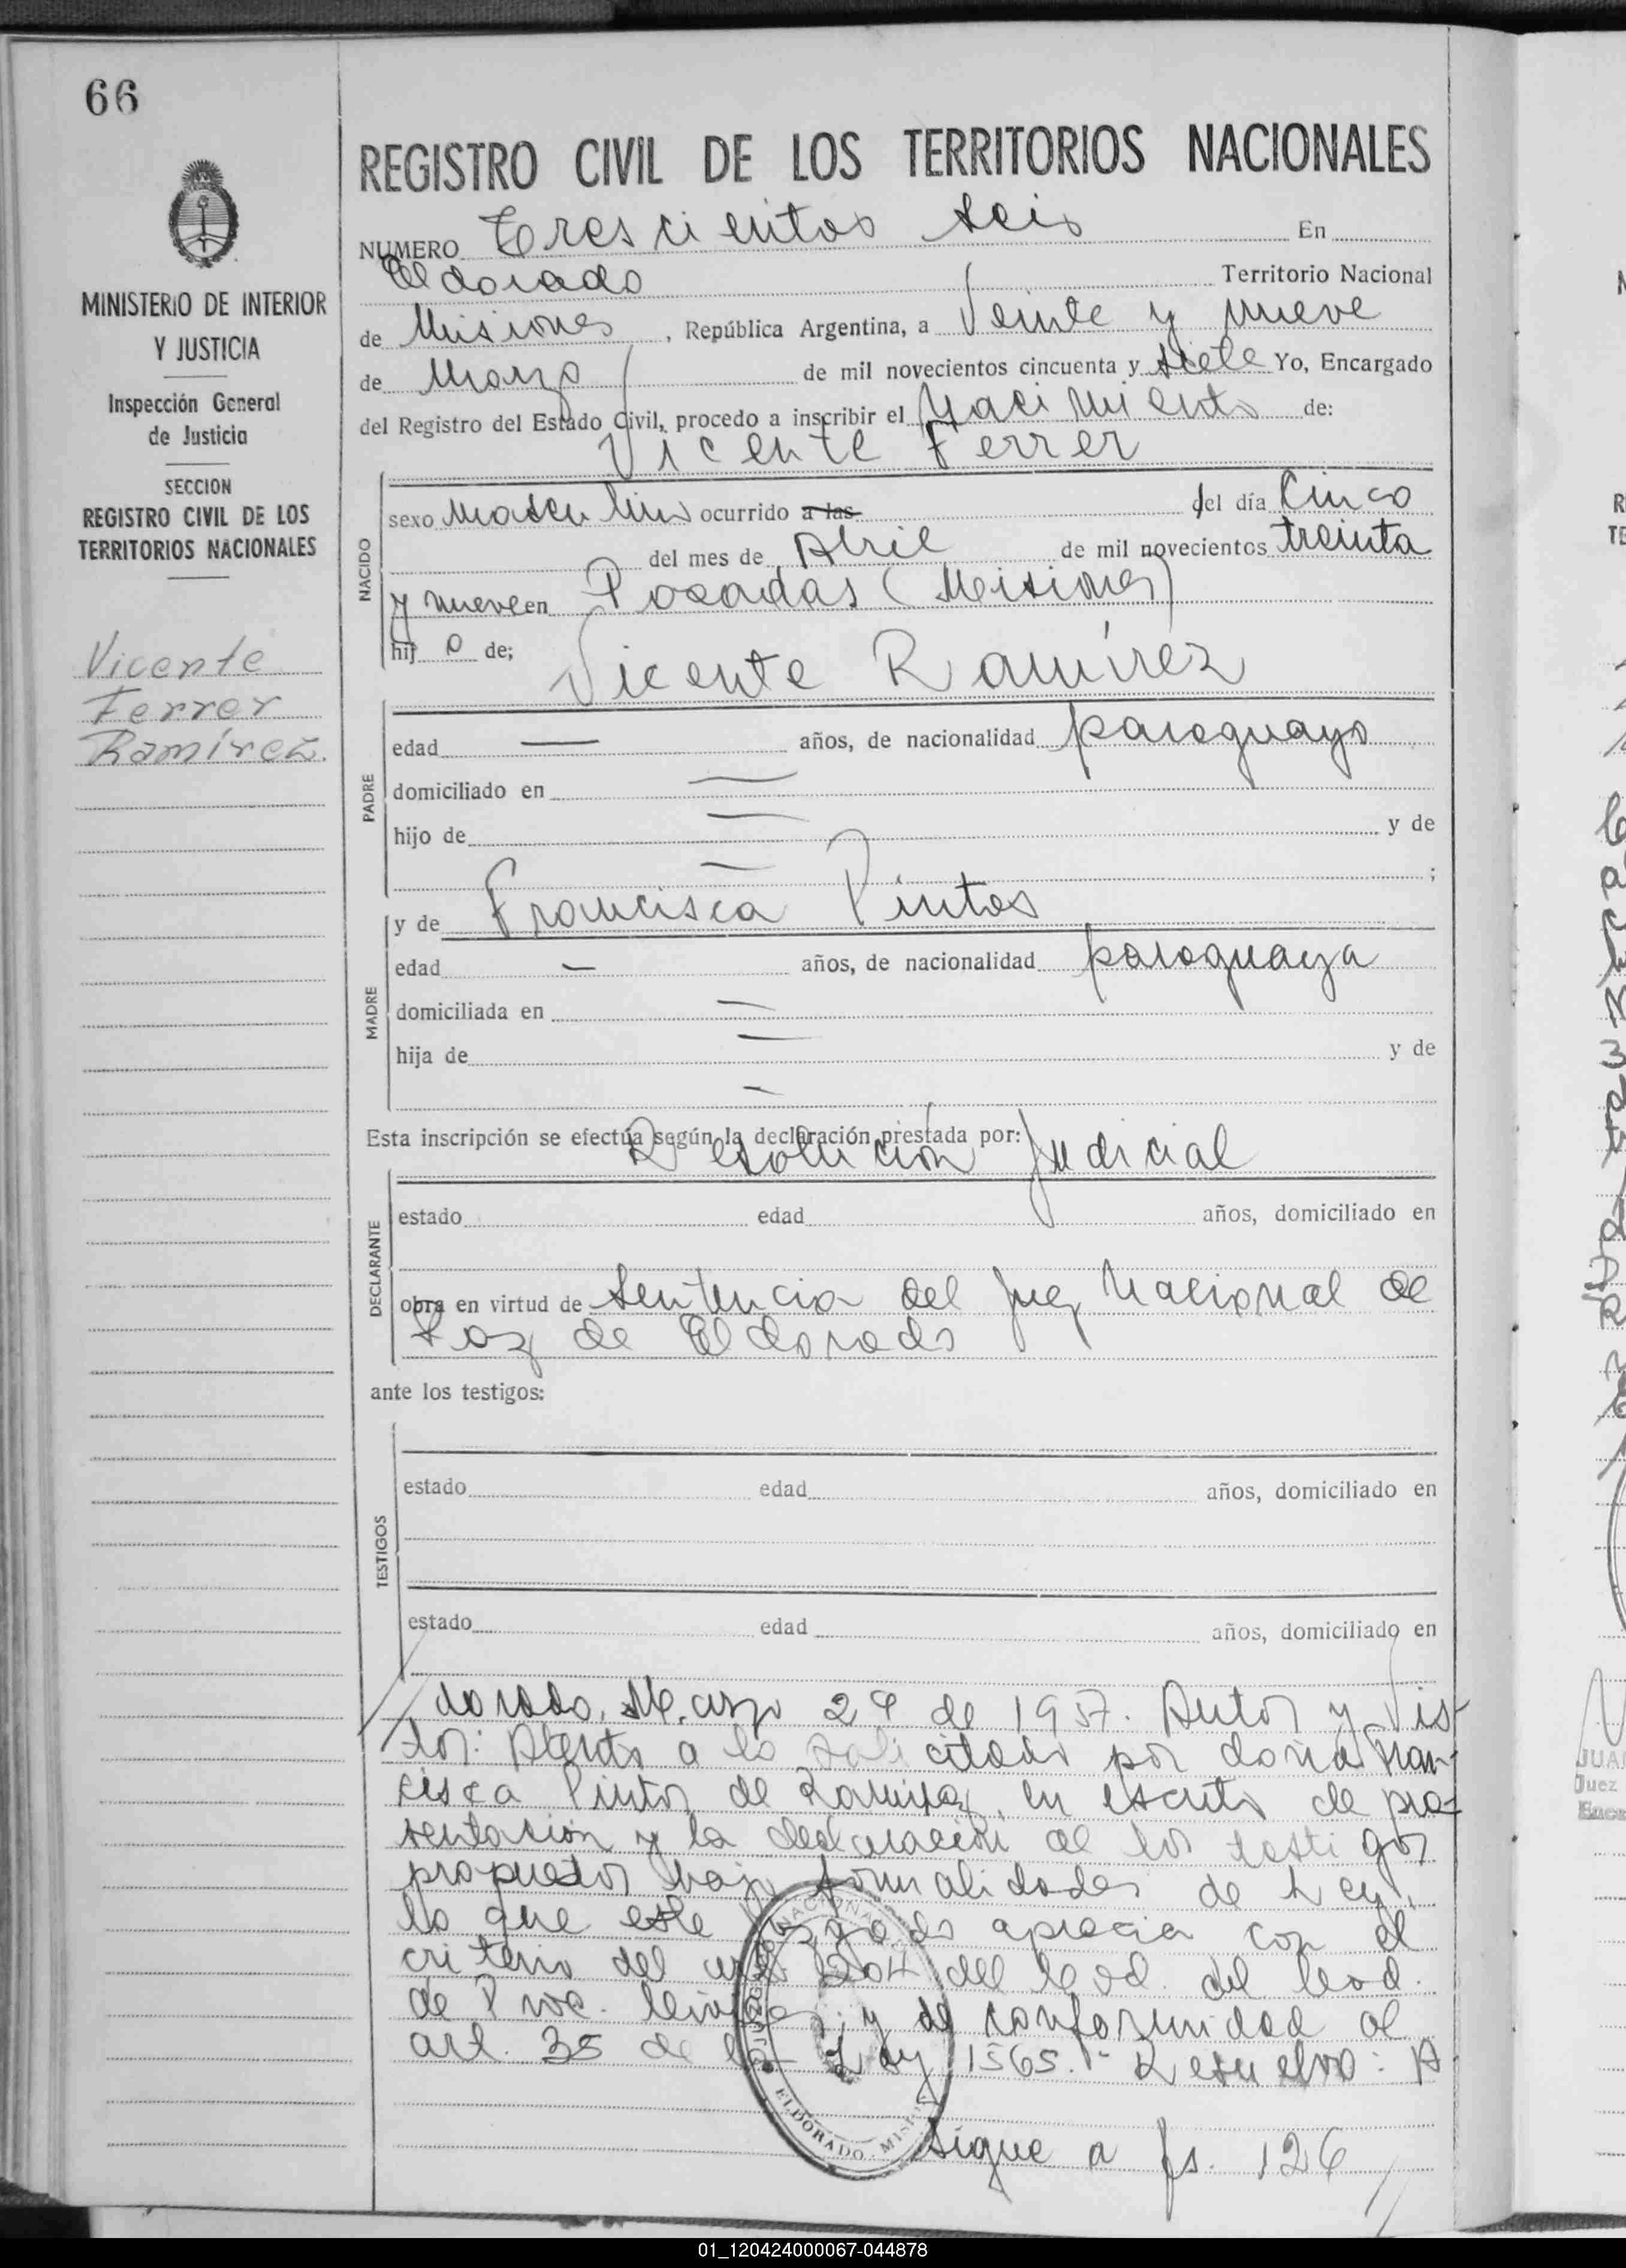 66
MINISTERIO DE INTERIOR
Y JUSTICIA
Inspección General
de Justicia
SECCION
REGISTRO CIVIL DE LOS
TERRITORIOS NACIONALES
Vicente
Ferrer
Ramírez.
REGISTRO CIVIL DE LOS TERRITORIOS NACIONALES
NUMERO Trescientos seis En
Eldorado Territorio Nacional
de Misiones, República Argentina, a Veinte y nueve
de Marzo de mil novecientos cincuenta y siete Yo, Encargado
del Registro del Estado Civil, procedo a inscribir el Nacimiento de:
Vicente Ferrer
NACIDO
sexo Masculino ocurrido a las del día Cinco
del mes de Abril de mil novecientos treinta
y nueve en Posadas (Misiones)
hijo de;
Vicente Ramírez
PADRE
edad — años, de nacionalidad paraguayo
domiciliado en —
hijo de — y de
— ;
y de Francisca Pintos
MADRE
edad — años, de nacionalidad paraguaya
domiciliada en —
hija de — y de
—
Esta inscripción se efectúa según la declaración prestada por:
Resolución Judicial
DECLARANTE
estado edad años, domiciliado en
obra en virtud de Sentencia del Juez Nacional de
Paz de Eldorado
ante los testigos:
TESTIGOS
estado edad años, domiciliado en
estado edad años, domiciliado en
dorado, Marzo 29 de 1957. Autos y Vis-
tos: Atento a lo solicitado por doña Fran-
cisca Pintos de Ramirez, en escrito de pre-
sentación y la declaración de los testigos
propuestos bajo formalidades de Ley,
lo que este Juzgado aprecia con el
criterio del art. 204 del Cod. del Cod.
de Proc. y de conformidad al
art. 35 de la Ley 1565.- Resuelvo: A
Sigue a fs. 126
NACIONAL
ELDORADO. MISIONES
JUA
Juez
Enca
01_120424000067-044878